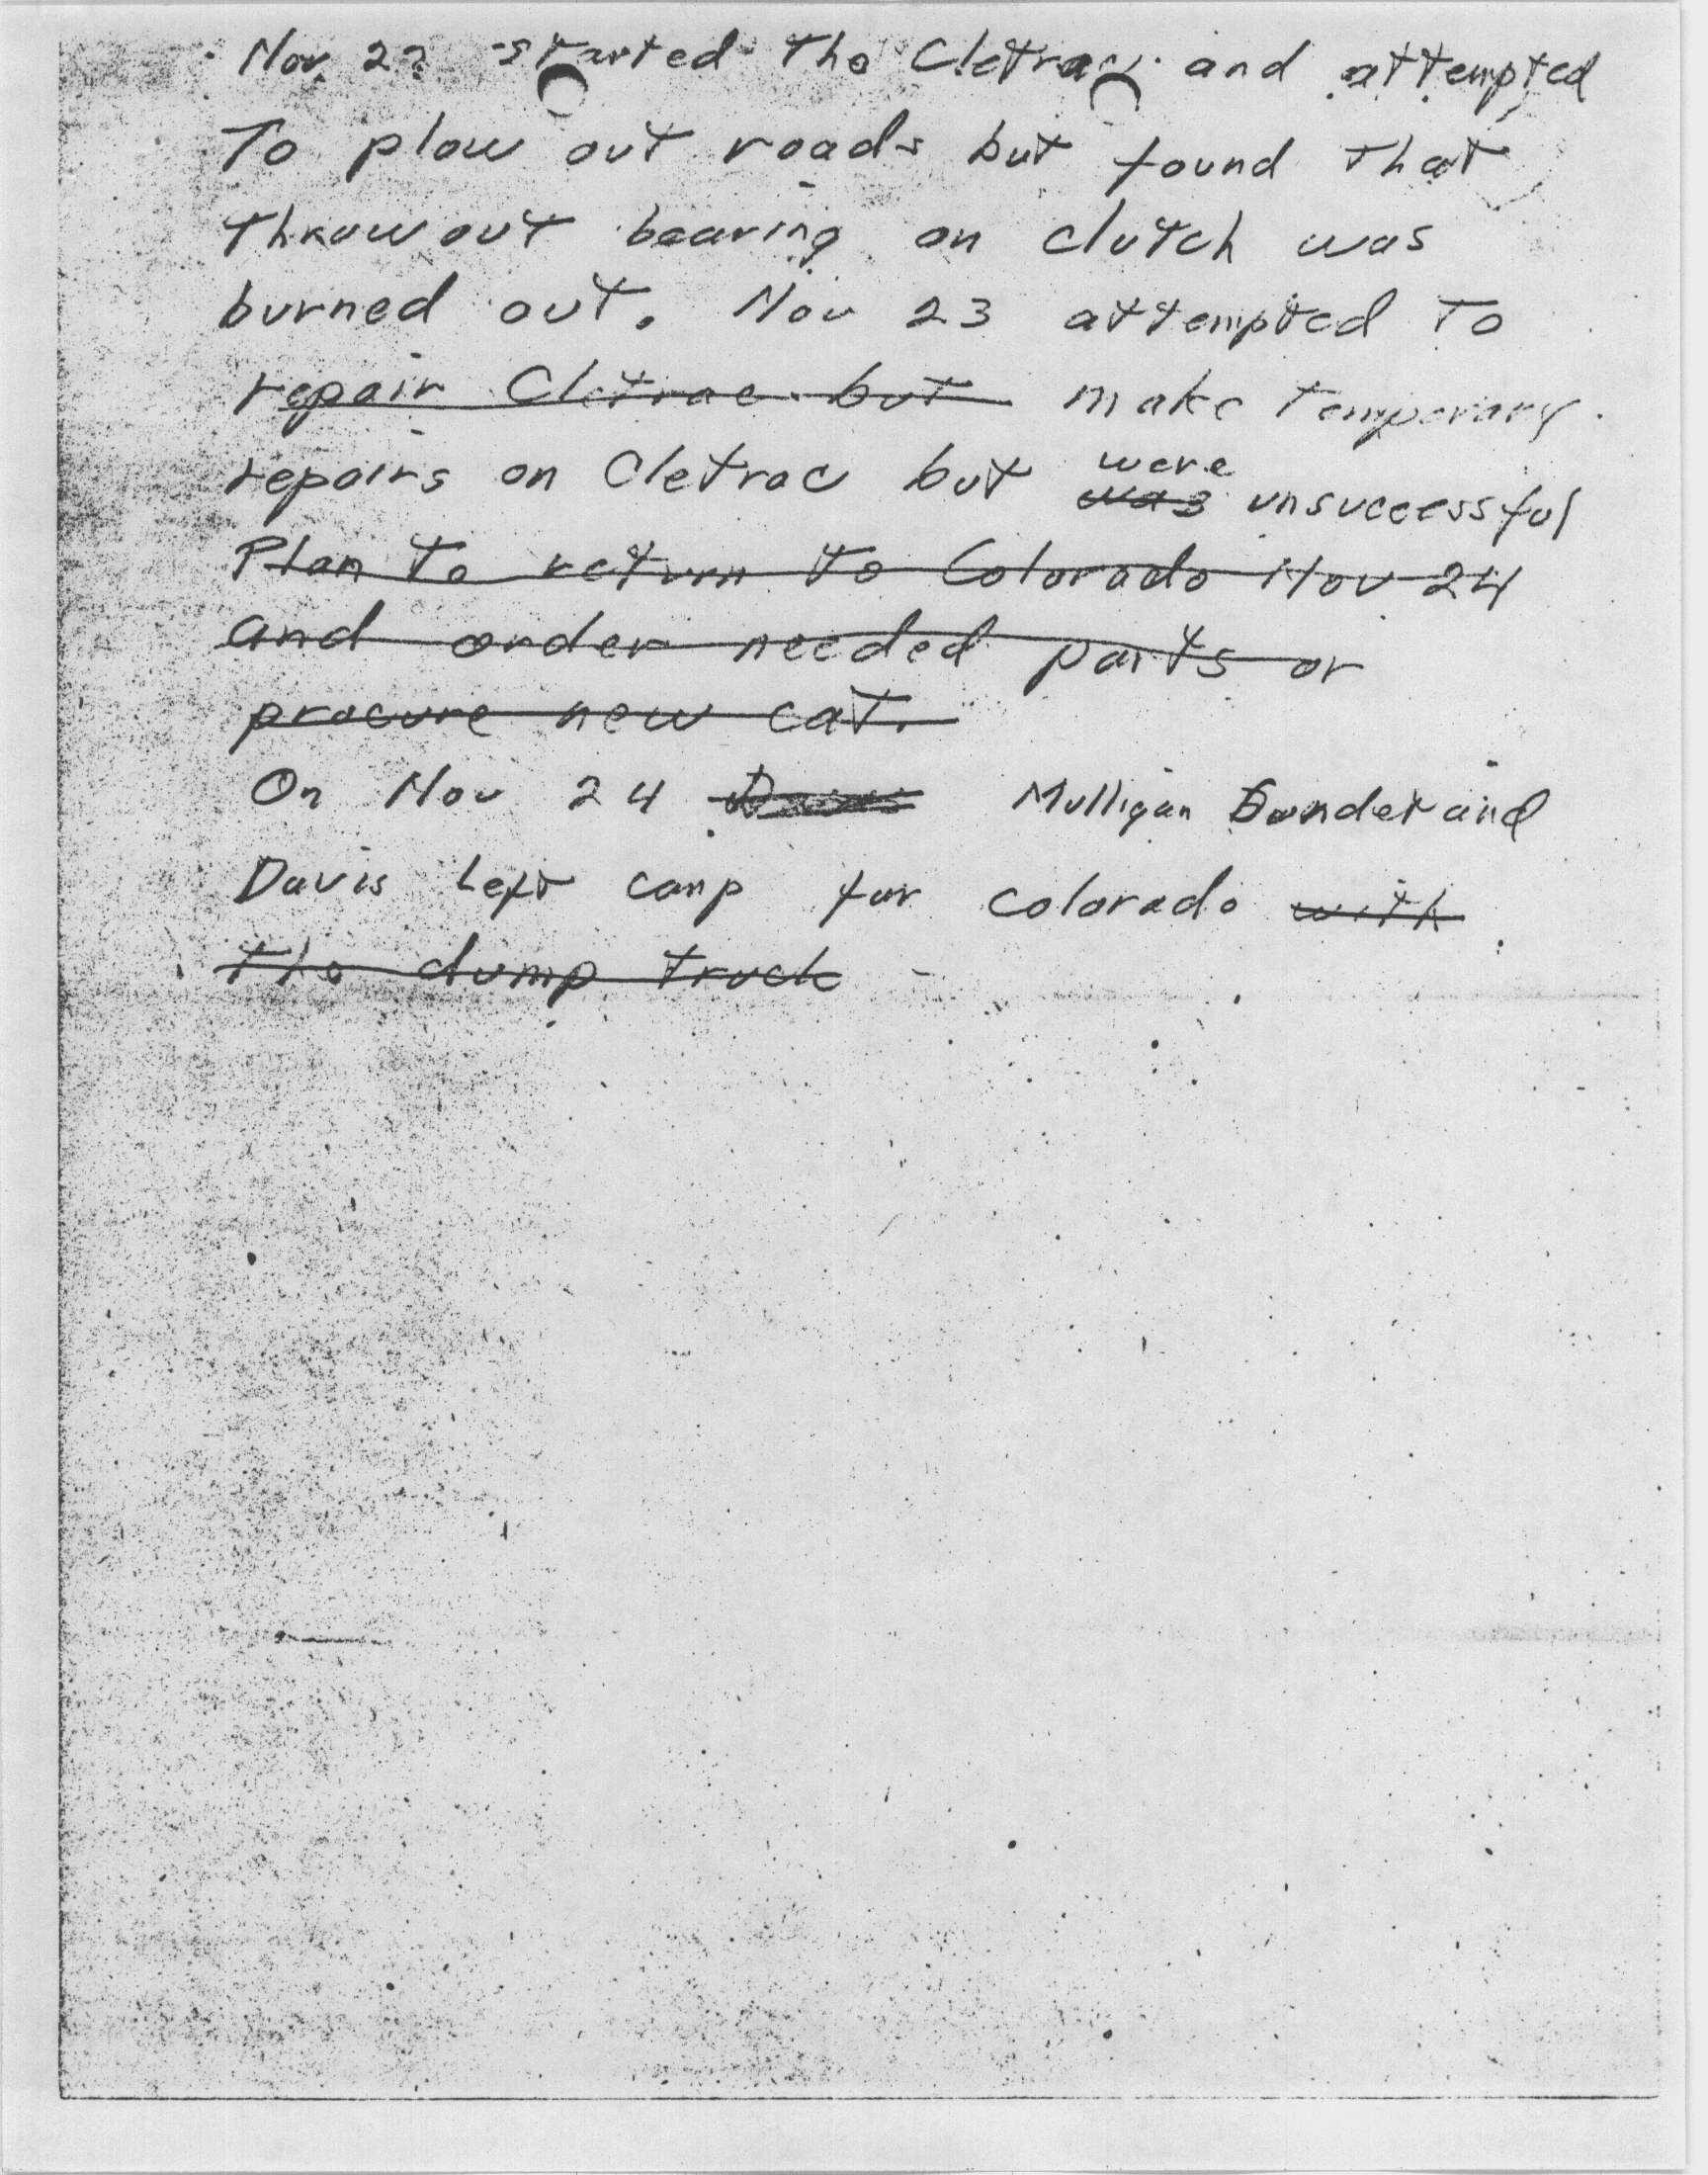 Nov. 22 started the Cletrac and attempted
To plow out roads but found that
Throwout bearing on clutch was
burned out. Nov 23 attempted To
repair Cletrac but make temporary
repairs on Cletrac but were
was unsuccessful
Plan to return to Colorado Nov 24
and order needed parts or
procure new cat.
On Nov 24 Davis Mulligan and
Davis Left camp for Colorado with
the dump truck